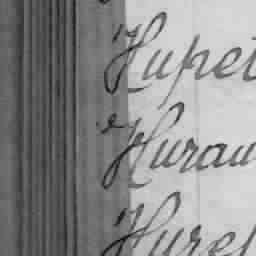 Hupet
Hurau
Huref